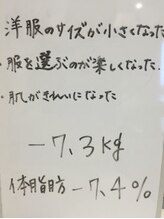 洋服のサイズが小さくなった
・服を選ぶのが楽しくなった.
・肌がきれいになった
-7.3kg
体脂肪 -7.4%